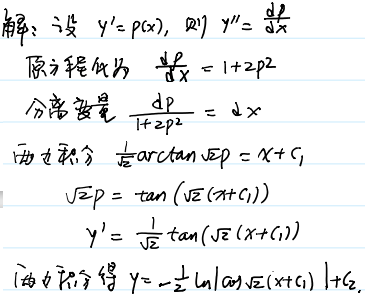 解：设 y'=p(x), 则 y''=dp/dx
原方程化为 dp/dx = 1+2p²
分离变量 dp/(1+2p²) = dx
两边积分 1/√2 arctan√2p = x+C₁
√2p = tan(√2(x+C₁))
y' = 1/√2 tan(√2(x+C₁))
两边积分得 y=-1/2 ln|cos√2(x+C₁)|+C₂.